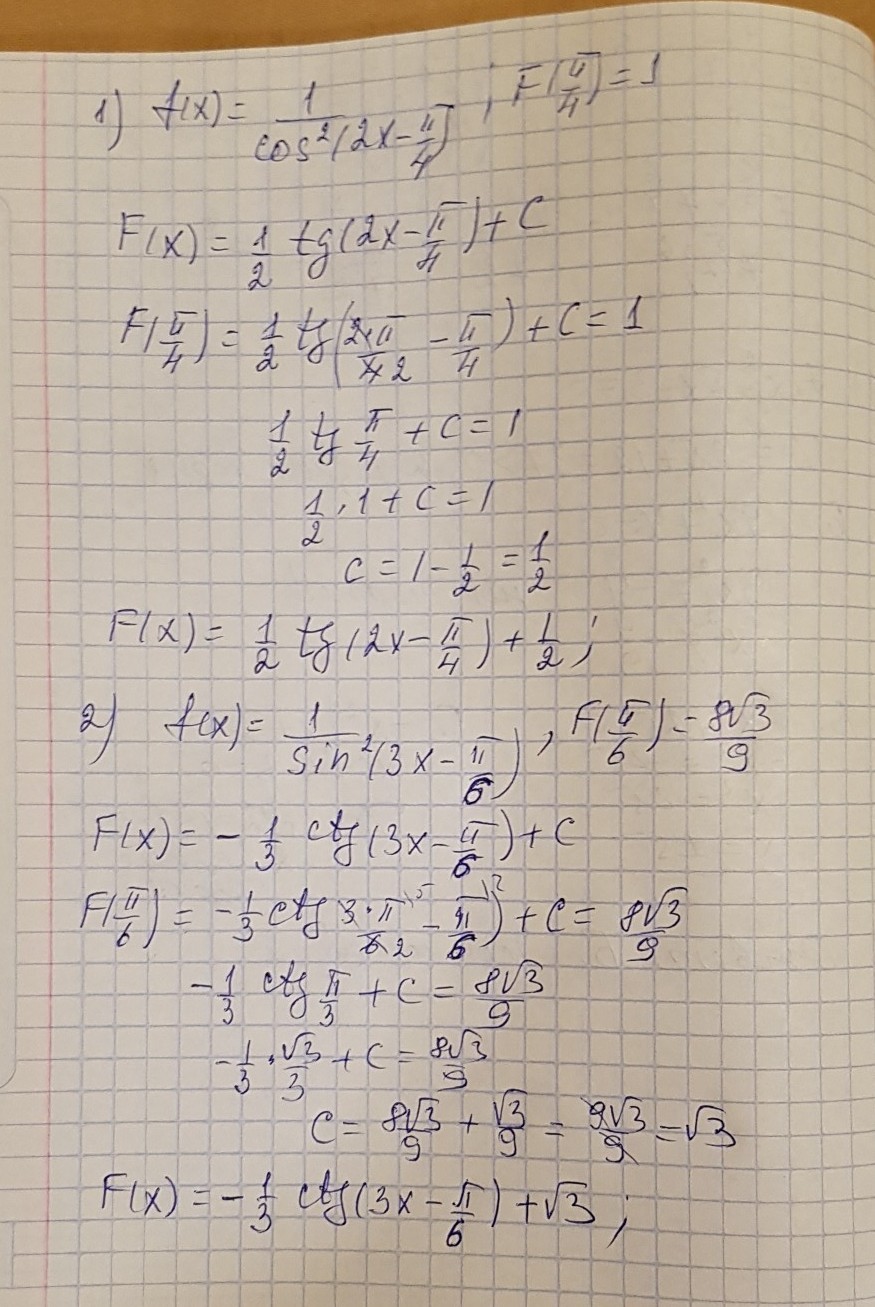 1) f(x) = 1/cos²(2x - π/4) ; F(π/4) = 1
F(x) = 1/2 tg(2x - π/4) + C
F(π/4) = 1/2 tg(2·π/4 2 - π/4) + C = 1
1/2 tg π/4 + C = 1
1/2 · 1 + C = 1
C = 1 - 1/2 = 1/2
F(x) = 1/2 tg(2x - π/4) + 1/2 ;
2) f(x) = 1/sin²(3x - π/6) , F(π/6) = 8√3/9
F(x) = - 1/3 ctg(3x - π/6) + C
F(π/6) = - 1/3 ctg 3·π/6 2 - π/6) + C = 8√3/9
- 1/3 ctg π/3 + C = 8√3/9
- 1/3 · √3/3 + C = 8√3/9
C = 8√3/9 + √3/9 = 9√3/9 = √3
F(x) = - 1/3 ctg(3x - π/6) + √3 ;